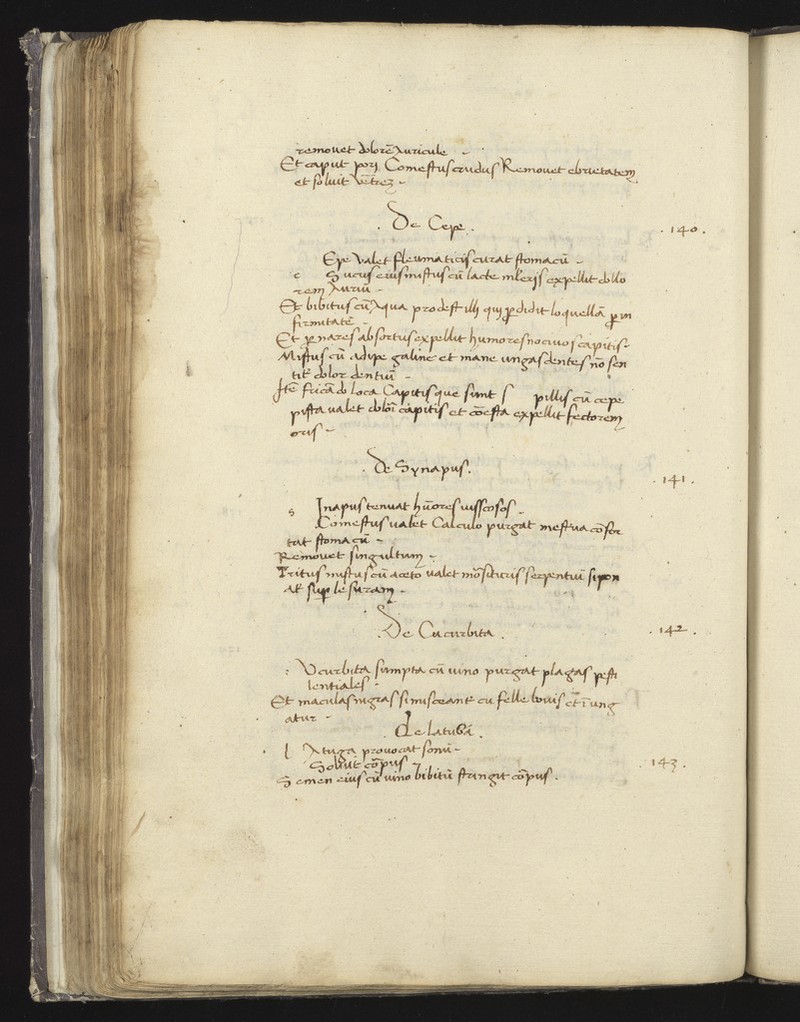 remouet dolorē Auricule -
Et caput porj Comestus crudus Remouet ebrietatem
et soluit vētrez -
. De Cepe .
. 140 .
Epe valet fleumaticis curat stomacū -
c Sucus eius mistus cū lacte mlerjs expellit dollo
rem Auriū -
Et bibitus cū Aqua prodest illj quj perdidit loquellā per in
firmitatē -
Et per nares absortus expellit humores nociuos capitis -
Mistus cū adipe galine et mane ungas dentes nō sen
tit dolor dentiū -
Itē fricādo loca Capitis que sunt s pillis cū cepe
pista valet dolōi capitis et cōesta expellit fectorem
oris -
. De Synapus .
. 141 .
s Inapus tenuat hūores uisscosos -
Comestus ualet Calculo purgat mestrua cōfor
tat stomacū -
Remouet singultum -
Tritus mistus cū aceto ualet morsicuris serpentiū si pon
at super lesuram -
. De Cucurbita .
. 142 .
: Vcurbita sumpta cū uino purgat plagas pesti
lentiales -
Et maculas nigras si misceant cu felle bouis et ī ung
atur -
. De latuca .
l Atuga prouocat somū -
. 143 .
Soluit cōpus -
Semen eius cū uino bibitū stringit cōpus .